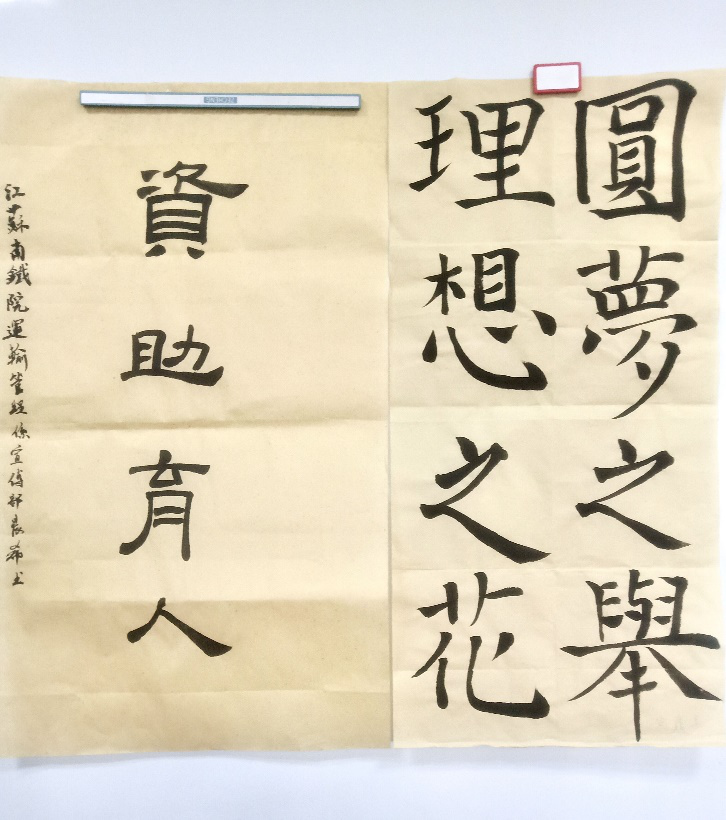 圓夢之舉
理想之花
資助育人
江蘇南鐵院運輸管經係宣傳部晨希书